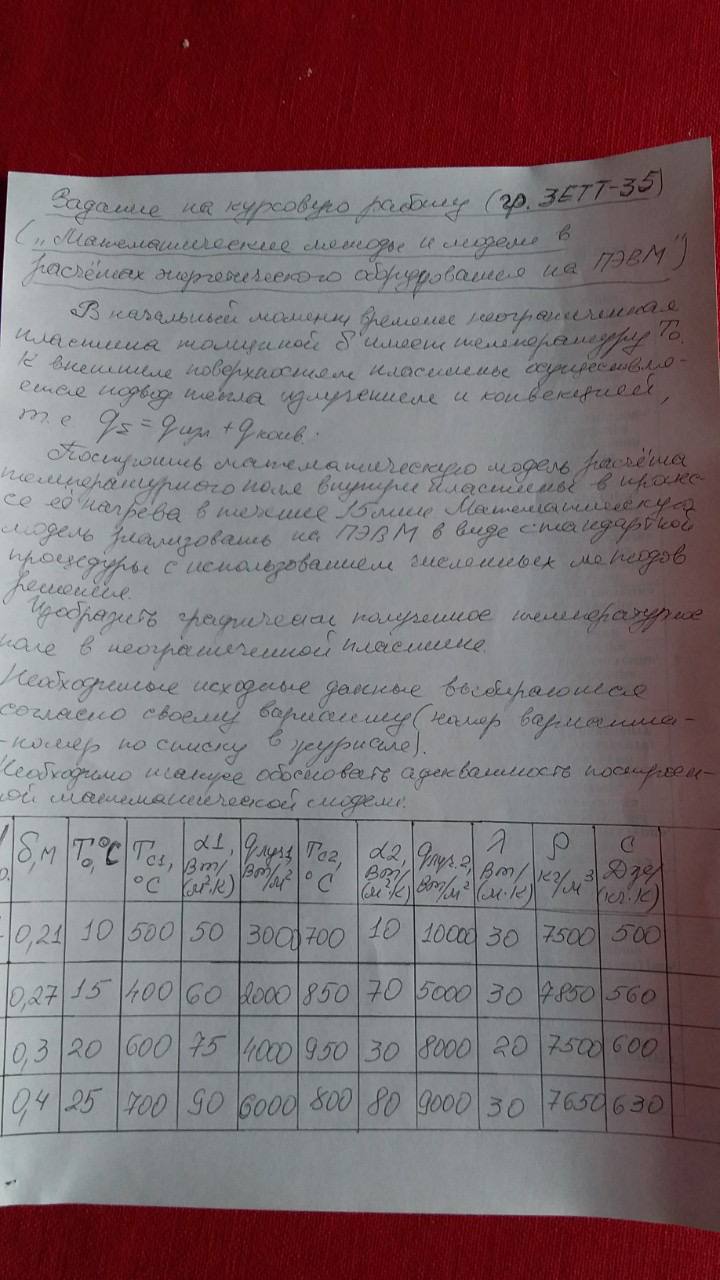 Задание на курсовую работу (гр. ЗЕТТ-35)
(„Математические методы и модели в
расчётах энергетического оборудования на ПЭВМ")
В начальный момент времени неограниченная
пластина толщиной δ имеет температуру T₀.
К внешним поверхностям пластины осуществля-
ется подвод тепла излучением и конвекцией,
т.е q_Σ = q_изл + q_конв.
Построить математическую модель расчёта
температурного поля внутри пластины в процес-
се её нагрева в течение 15 мин Математическую
модель реализовать на ПЭВМ в виде стандартной
процедуры с использованием численных методов
решения.
Изобразить графически полученное температурное
поле в неограниченной пластине.
Необходимые исходные данные выбираются
согласно своему варианту (номер варианта-
-номер по списку в журнале).
Необходимо также обосновать адекватность построен-
ой математической модели.
δ,м T₀,°C Tс1, °C α1, Вт/(м²·К) qлуч1, Вт/м² Tс2, °C α2, Вт/(м²·К) qлуч.2, Вт/м² λ Вт/(м·К) ρ кг/м³ c Дж/(кг·К)
0,21 10 500 50 3000 700 10 10000 30 7500 500
0,27 15 400 60 2000 850 70 5000 30 7850 560
0,3 20 600 75 4000 950 30 8000 20 7500 600
0,4 25 700 90 6000 800 80 9000 30 7650 630